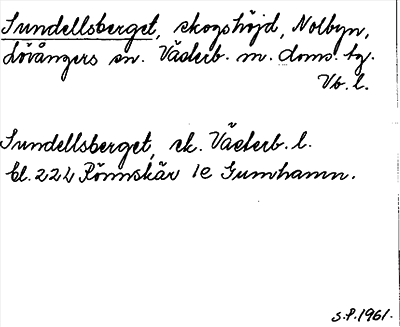 Sundellsberget, skogshöjd, Nolbyn,
Lövångers sn. Västerb. m. doms. tg.
Vb. l.
Sundellsberget, sk. Västerb. l.
bl. 22L Rönnskär 1e Gumhamn.
S.P. 1961.